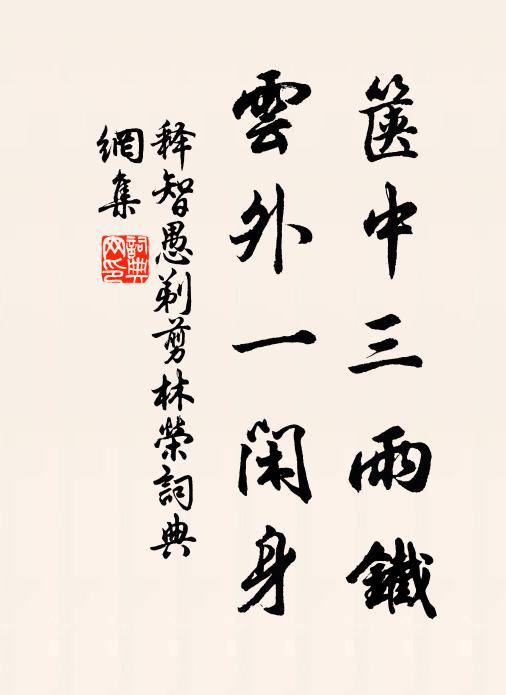 篋中三兩鐵
雲外一閑身
释智愚剃剪林榮詞典
網集
詞典网印